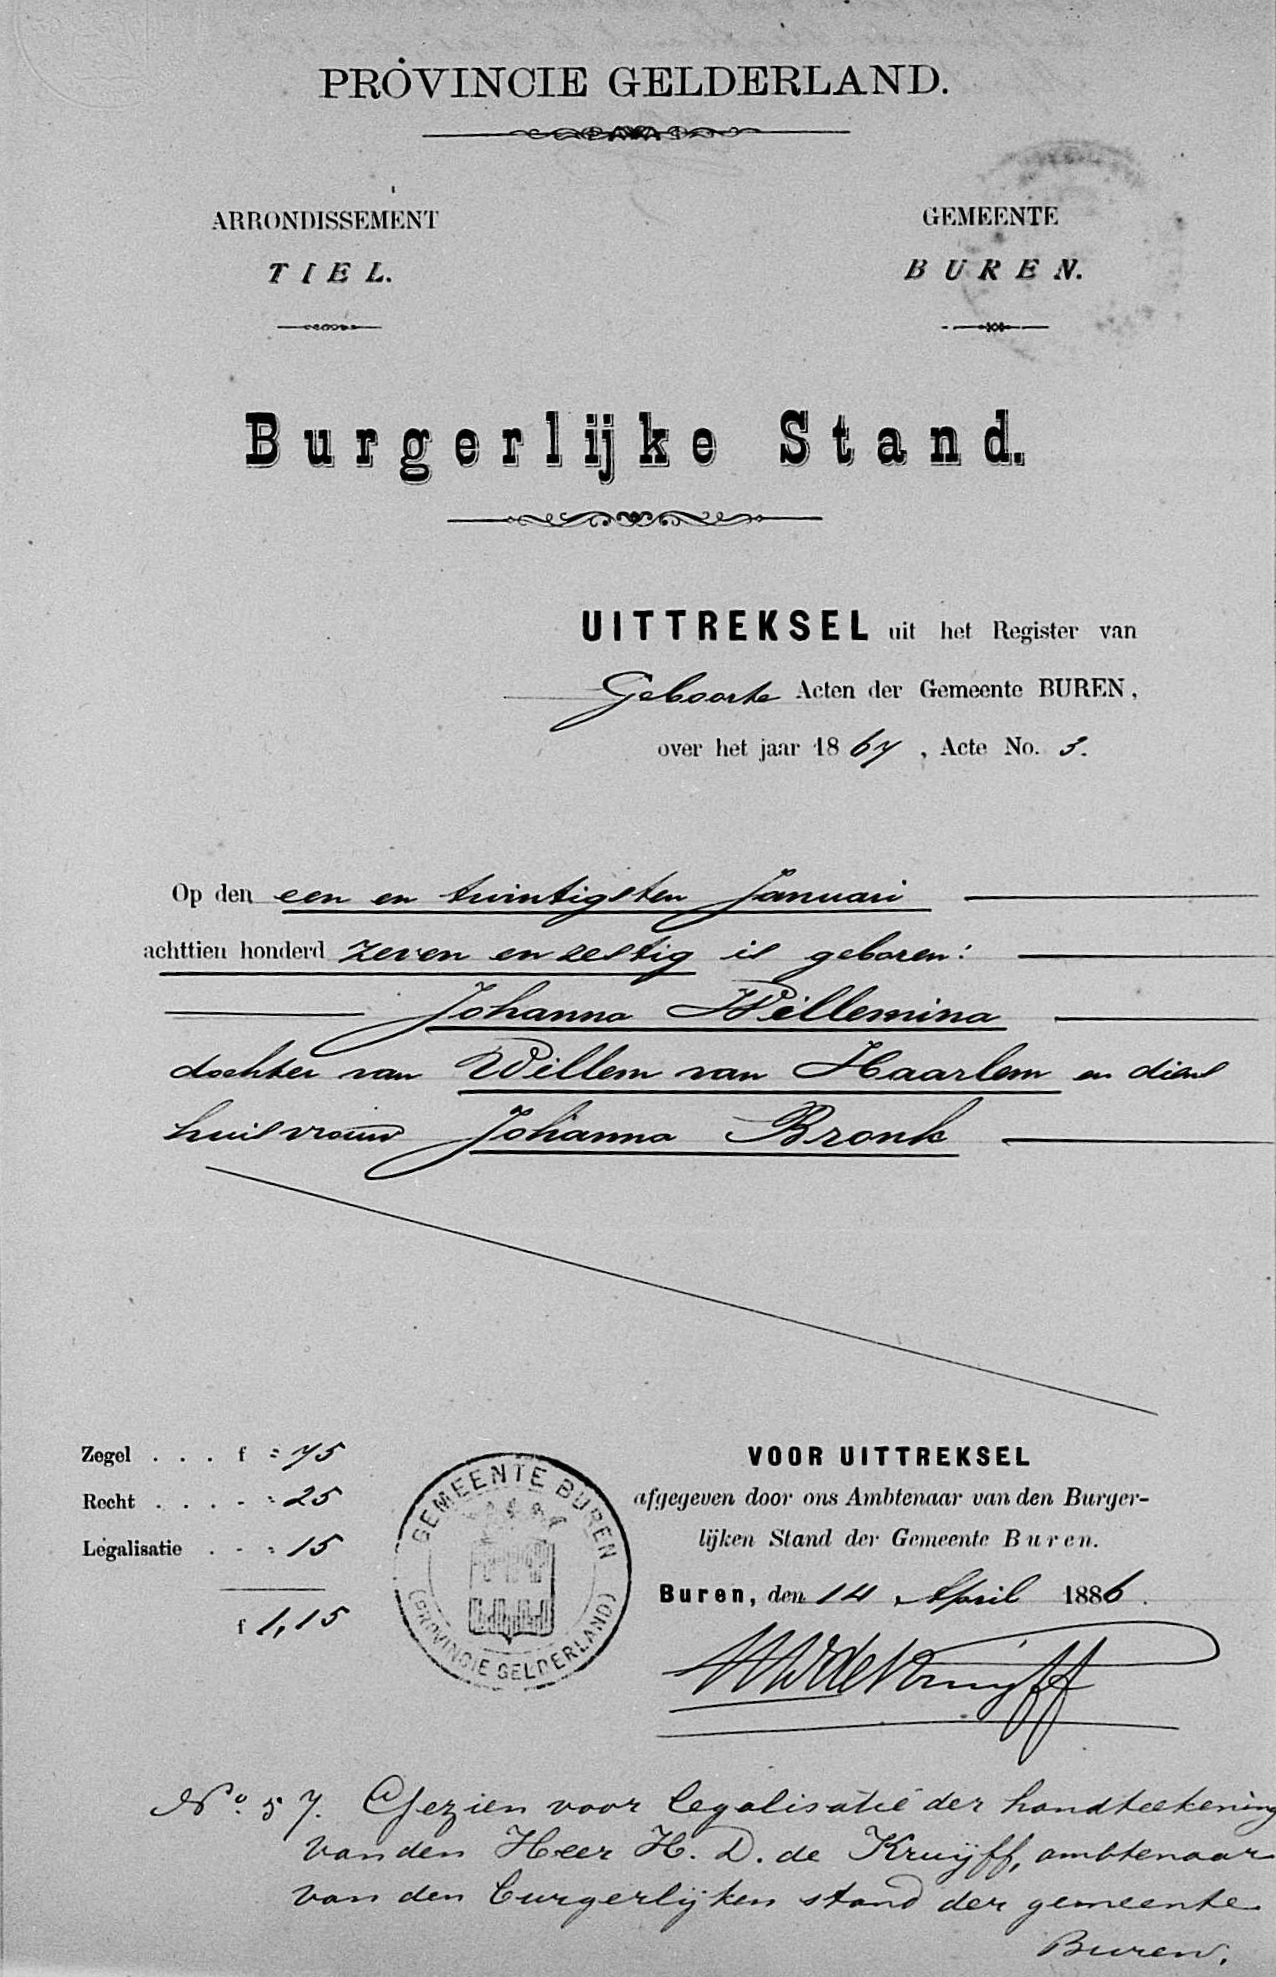 PROVINCIE GELDERLAND.
ARRONDISSEMENT
TIEL.
GEMEENTE
BUREN.
Burgerlijke Stand.
UITTREKSEL uit het Register van
Geboorte Acten der Gemeente BUREN,
over het jaar 1867, Acte No. 3.
Op den een en twintigsten Januari
achttien honderd zeven en zestig is geboren:
Johanna Willemina
dochter van Willem van Haarlem en diens
huisvrouw Johanna Bronk
Zegel . . . f = 75
Recht . . . . - = 25
Legalisatie . - = 15
f 1,15
GEMEENTE BUREN
(PROVINCIE GELDERLAND)
VOOR UITTREKSEL
afgegeven door ons Ambtenaar van den Burger-
lijken Stand der Gemeente Buren.
Buren, den 14 April 1886.
HD de Kruijff
No. 57. Gezien voor legalisatie der handteekening
van den Heer H. D. de Kruijff, ambtenaar
van den burgerlijken stand der gemeente
Buren.